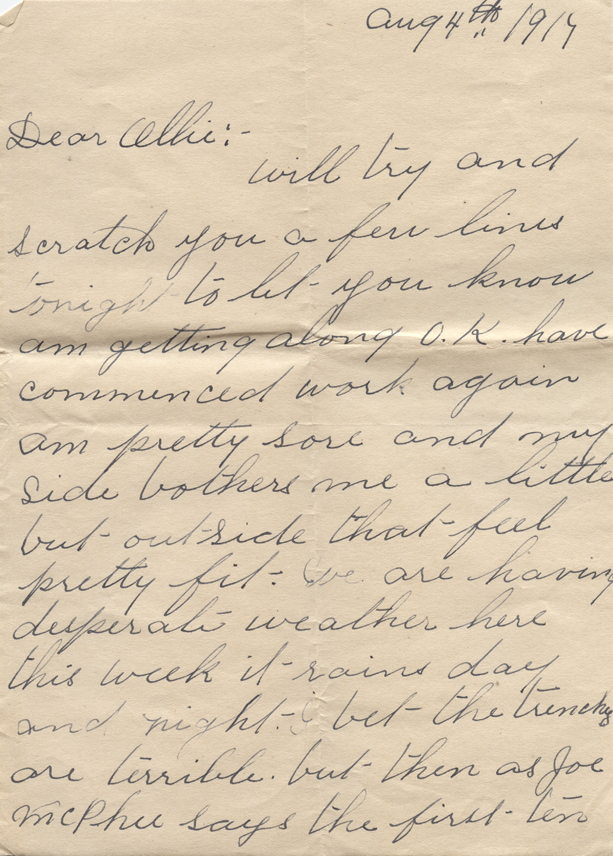 Aug 4th 1917
Dear Ollie:-
will try and
scratch you a few lines
tonight to let you know
am getting along O.K. have
commenced work again
am pretty sore and my
side bothers me a little
but outside that feel
pretty fit. We are having
desperate weather here
this week it rains day
and night. I bet the trenches
are terrible. but then as Joe
McPhee says the first ten